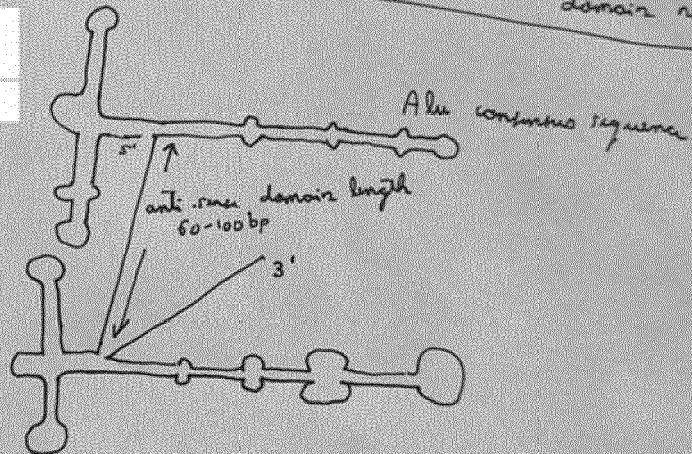 domain
Alu consensus sequence
5'
anti-sense domain length
60-100 bp
3'